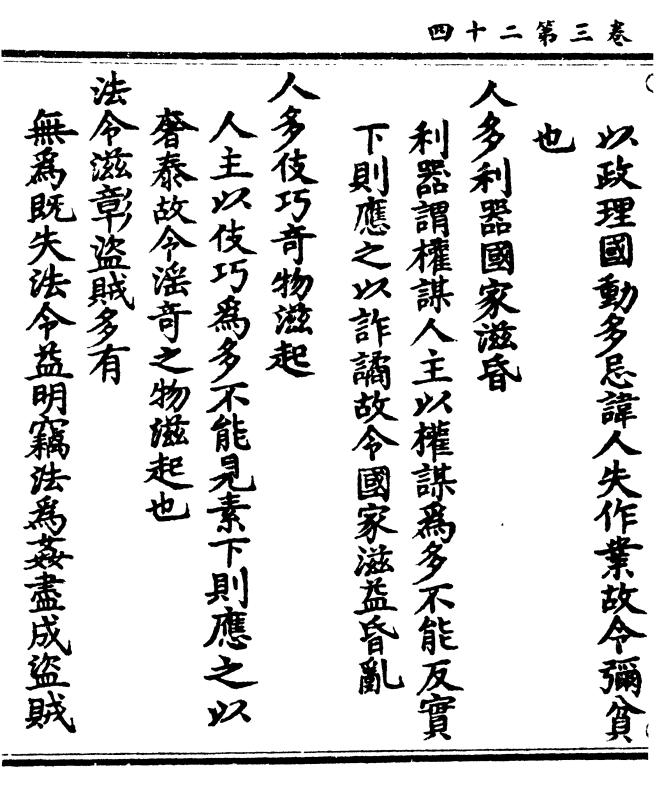 卷三第二十四
以政理國動多忌諱人失作業故令彌貧
也
人多利器國家滋昏
利器謂權謀人主以權謀爲多不能反實
下則應之以詐譎故令國家滋益昏亂
人多伎巧奇物滋起
人主以伎巧爲多不能見素下則應之以
奢泰故令淫奇之物滋起也
法令滋彰盜賊多有
無爲既失法令益明竊法爲姦盡成盜賊